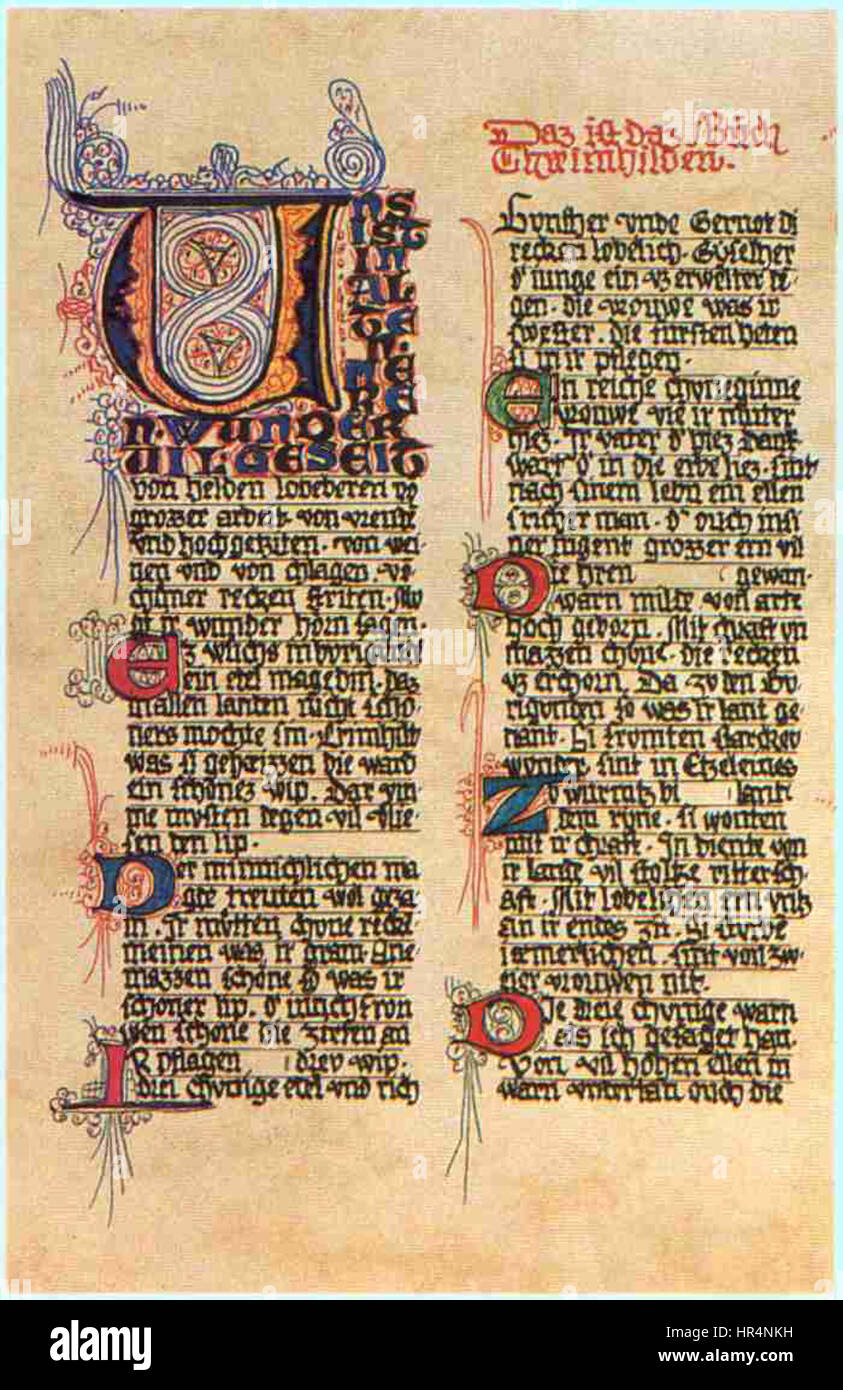 UNS
IST
IN
AL
TE
N.
MÆ
RE
N. WUNDER
UIL GESEIT
von helden lobeberen vō
grozzer arbeit. von vreude
vnd hochgetziten. von wei
nen vnd von chlagen. vō
chuner recken striten. Mv
ir wunder horn sagen.
Ez wuchs in
ein edel magedin. daz
in allen landen nicht scho
ners mochte sin. Crimhilt
was si geheizzen die ward
ein schonez wip. Dar vm
me mvsten degen vil vlie
sen den lip.
Der minnichlichen ma
gde treuten wol geza
m. Ir mvtten chone recke
meinen was ir gram. Ane
mazzen schone so was ir
schoner lip. d' iunchfron
wen schone die zirten an
drev wip.
Ir pflagen
drei chvnige edel vnd rich
Daz ist daz Buch
Chreimhilden.
Gvnther vnde Gernot di
recken lobelich. Gyselher
d' iunge ein vz erwelter de
gen. die vrouwe was ir
swester. die fursten heten
si in ir pflegen.
Ein reiche chvneginne
vrouwe vte ir muter
hiez. Ir vater d' hiez Dank
wart d' in die erbe liez. sint
nach sinem lebn ein ellen
s richer man. d' ouch in si
ner iugent grozzer ern vil
gewan.
Die hren
warn milde von arte
hoch geborn. Mit chraft vn
mazzen chone. die recken
vz erchorn. Da zv den Bv
rigonden so was ir lant ge
nant. Si frvmten starckev
wonder sint in Etzelenes
lant.
Zv wurmtz bi
dem ryne. si wonten
mit ir chraft. In diente von
ir lande vil stoltze rittersch
aft. Mit lobelichen ern vntz
an ir endes zit. Si sturbē
iemerlichen. sint von zw
eier vrouwen nit.
Die dreie chvnige warn
als ich gesaget han.
Von vil hohen ellen in
warn vndertan ouch die
alamy
Image ID: HR4NKH
www.alamy.com